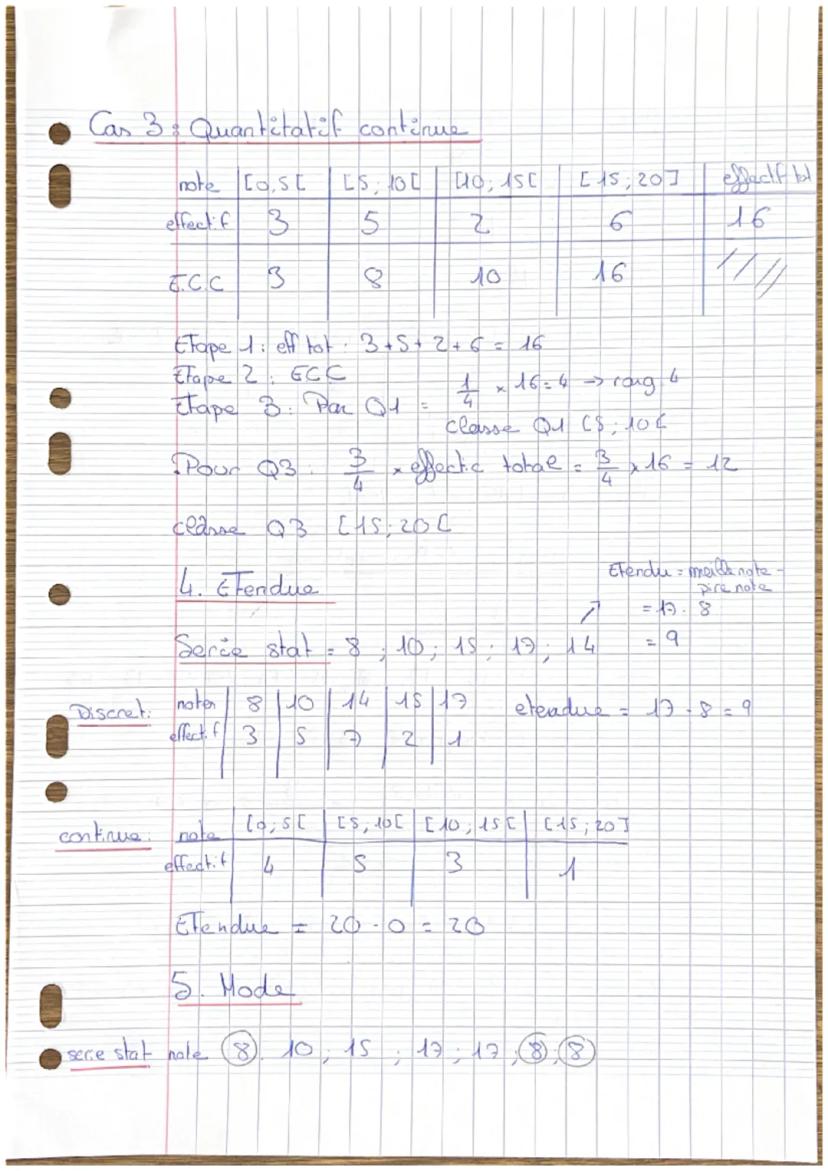 Cas 3 : Quantitatif continue
note [0,5[ [5; 10[ [10; 15[ [15; 20] effectif tot
effectif 3 5 2 6 16
E.C.C 3 8 10 16
Etape 1 : eff tot : 3+5+2+6 = 16
Etape 2 : ECC
Etape 3 : Par Q1 = 1/4 × 16 = 4 → rang 4
classe Q1 [5; 10[
Pour Q3 : 3/4 × effectic total = 3/4 × 16 = 12
classe Q3 [15; 20[
4. Etendue
Etendu = meille note -
pire note
= 17 - 8
= 9
Serie stat = 8 ; 10 ; 15 ; 17 ; 14
Discret : noter 8 10 14 15 17 etendue = 17 - 8 = 9
effectif 3 5 7 2 1
continue : note [0; 5[ [5, 10[ [10; 15[ [15; 20]
effectif 4 5 3 1
Etendue = 20 - 0 = 20
5. Mode
serie stat note 8. 10 ; 15 ; 17 ; 17 ; 8 ; 8